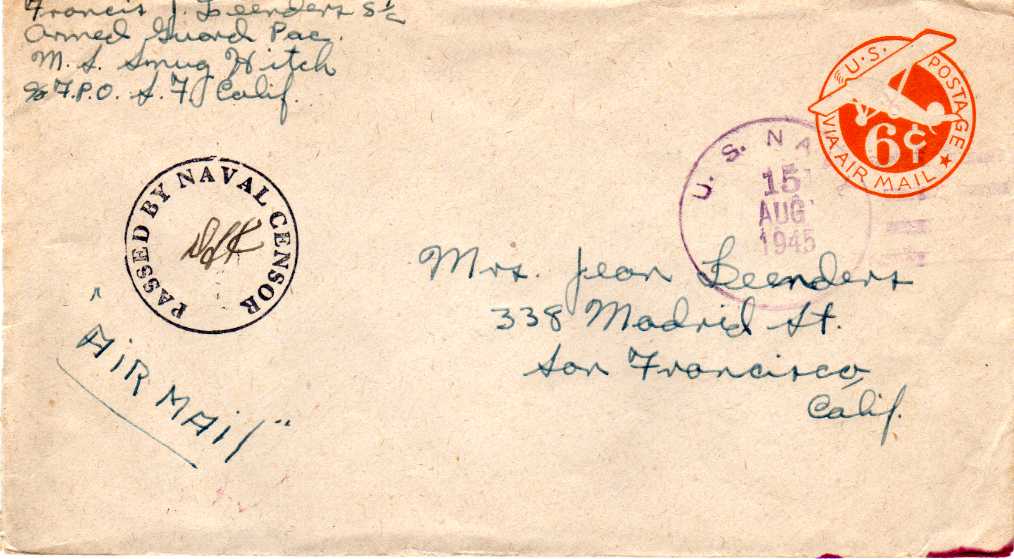 Francis J. Leenders S 1/c
Armed Guard Pac.
M. S. Smug Hitch
c/o F.P.O. S.F. Calif.
U.S. POSTAGE
VIA AIR MAIL
6¢
U. S. NA
15
AUG
1945
PASSED BY NAVAL CENSOR
Mrs. Jean Leenders
338 Madrid St.
San Francisco,
Calif.
"AIR MAIL"